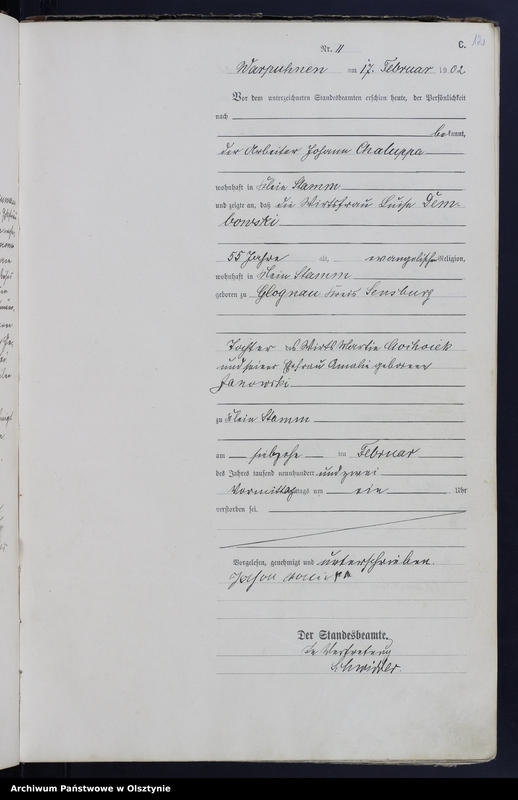 C.
Nr. 11
Warpuhnen am 17. Februar 1902
Vor dem unterzeichneten Standesbeamten erschien heute, der Persönlichkeit
nach
bekannt,
der Arbeiter Johann Chaluppa
wohnhaft in Klein Stamm
und zeigte an, daß die Wirtsfrau Luise Dem-
bowski
55 Jahre alt, evangelischer Religion,
wohnhaft in Klein Stamm
geboren zu Glognau Kreis Sensburg
Tochter des Wirts Martin
und seiner Ehefrau Amalie geborenen
Janowski
zu Klein Stamm
am siebzehn ten Februar
des Jahres tausend neunhundert und zwei
Vormittags um ein Uhr
verstorben sei.
Vorgelesen, genehmigt und unterschrieben.
Der Standesbeamte.
In Vertretung
Archiwum Państwowe w Olsztynie